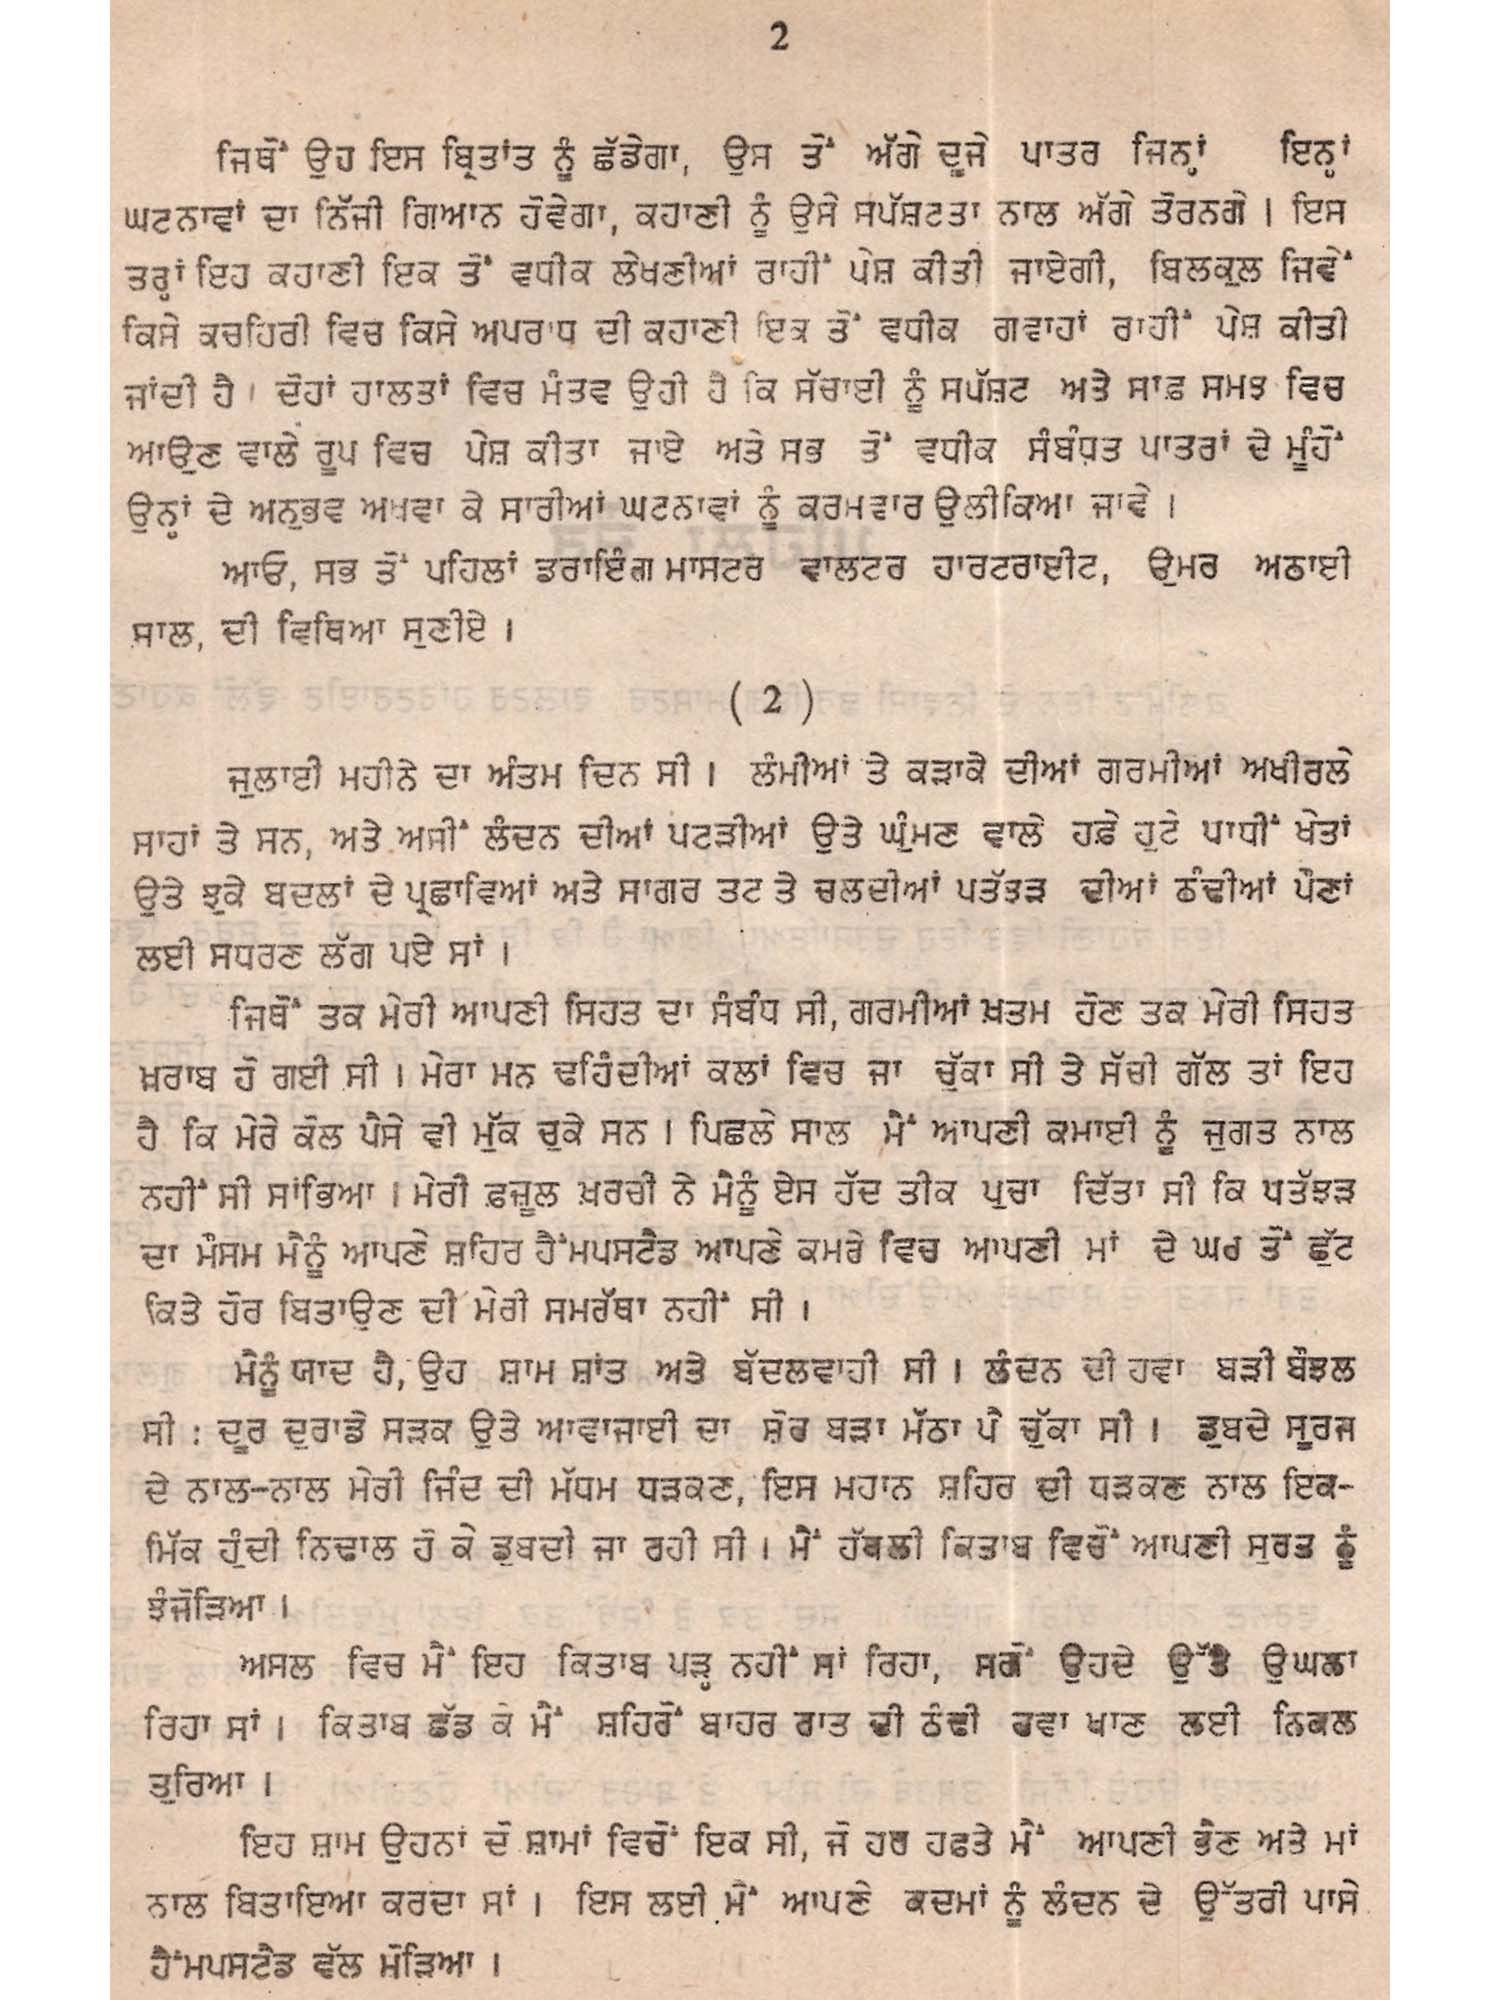 2
ਜਿਥੋਂ ਉਹ ਇਸ ਬ੍ਰਿਤਾਂਤ ਨੂੰ ਛੱਡੇਗਾ, ਉਸ ਤੋਂ ਅੱਗੇ ਦੂਜੇ ਪਾਤਰ ਜਿਨ੍ਹਾਂ ਇਨ੍ਹਾਂ
ਘਟਨਾਵਾਂ ਦਾ ਨਿੱਜੀ ਗਿਆਨ ਹੋਵੇਗਾ, ਕਹਾਣੀ ਨੂੰ ਉਸੇ ਸਪੱਸ਼ਟਤਾ ਨਾਲ ਅੱਗੇ ਤੋਰਨਗੇ । ਇਸ
ਤਰ੍ਹਾਂ ਇਹ ਕਹਾਣੀ ਇਕ ਤੋਂ ਵਧੀਕ ਲੇਖਣੀਆਂ ਰਾਹੀਂ ਪੇਸ਼ ਕੀਤੀ ਜਾਏਗੀ, ਬਿਲਕੁਲ ਜਿਵੇਂ
ਕਿਸੇ ਕਚਹਿਰੀ ਵਿਚ ਕਿਸੇ ਅਪਰਾਧ ਦੀ ਕਹਾਣੀ ਇਕ ਤੋਂ ਵਧੀਕ ਗਵਾਹਾਂ ਰਾਹੀਂ ਪੇਸ਼ ਕੀਤੀ
ਜਾਂਦੀ ਹੈ । ਦੋਹਾਂ ਹਾਲਤਾਂ ਵਿਚ ਮੰਤਵ ਉਹੀ ਹੈ ਕਿ ਸੱਚਾਈ ਨੂੰ ਸਪੱਸ਼ਟ ਅਤੇ ਸਾਫ਼ ਸਮਝ ਵਿਚ
ਆਉਣ ਵਾਲੇ ਰੂਪ ਵਿਚ ਪੇਸ਼ ਕੀਤਾ ਜਾਏ ਅਤੇ ਸਭ ਤੋਂ ਵਧੀਕ ਸੰਬੰਧਤ ਪਾਤਰਾਂ ਦੇ ਮੂੰਹੋਂ
ਉਨ੍ਹਾਂ ਦੇ ਅਨੁਭਵ ਅਖਵਾ ਕੇ ਸਾਰੀਆਂ ਘਟਨਾਵਾਂ ਨੂੰ ਕਰਮਵਾਰ ਉਲੀਕਿਆ ਜਾਵੇ ।
ਆਓ, ਸਭ ਤੋਂ ਪਹਿਲਾਂ ਡਰਾਇੰਗ ਮਾਸਟਰ ਵਾਲਟਰ ਹਾਰਟਰਾਈਟ, ਉਮਰ ਅਠਾਈ
ਸਾਲ, ਦੀ ਵਿਥਿਆ ਸੁਣੀਏ ।
( 2 )
ਜੁਲਾਈ ਮਹੀਨੇ ਦਾ ਅੰਤਮ ਦਿਨ ਸੀ । ਲੰਮੀਆਂ ਤੇ ਕੜਾਕੇ ਦੀਆਂ ਗਰਮੀਆਂ ਅਖੀਰਲੇ
ਸਾਹਾਂ ਤੇ ਸਨ, ਅਤੇ ਅਸੀਂ ਲੰਦਨ ਦੀਆਂ ਪਟੜੀਆਂ ਉਤੇ ਘੁੰਮਣ ਵਾਲੇ ਹਫ਼ੇ ਹੁਟੇ ਪਾਧੀਂ ਖੇਤਾਂ
ਉਤੇ ਝੁਕੇ ਬਦਲਾਂ ਦੇ ਪ੍ਰਛਾਵਿਆਂ ਅਤੇ ਸਾਗਰ ਤਟ ਤੇ ਚਲਦੀਆਂ ਪਤੱਝੜ ਦੀਆਂ ਠੰਢੀਆਂ ਪੌਣਾਂ
ਲਈ ਸਧਰਣ ਲੱਗ ਪਏ ਸਾਂ ।
ਜਿਥੋਂ ਤਕ ਮੇਰੀ ਆਪਣੀ ਸਿਹਤ ਦਾ ਸੰਬੰਧ ਸੀ, ਗਰਮੀਆਂ ਖ਼ਤਮ ਹੋਣ ਤਕ ਮੇਰੀ ਸਿਹਤ
ਖ਼ਰਾਬ ਹੋ ਗਈ ਸੀ । ਮੇਰਾ ਮਨ ਢਹਿੰਦੀਆਂ ਕਲਾਂ ਵਿਚ ਜਾ ਚੁੱਕਾ ਸੀ ਤੇ ਸੱਚੀ ਗੱਲ ਤਾਂ ਇਹ
ਹੈ ਕਿ ਮੇਰੇ ਕੋਲ ਪੈਸੇ ਵੀ ਮੁੱਕ ਚੁਕੇ ਸਨ । ਪਿਛਲੇ ਸਾਲ ਮੈਂ ਆਪਣੀ ਕਮਾਈ ਨੂੰ ਜੁਗਤ ਨਾਲ
ਨਹੀਂ ਸੀ ਸਾਂਭਿਆ । ਮੇਰੀ ਫ਼ਜ਼ੂਲ ਖ਼ਰਚੀ ਨੇ ਮੈਨੂੰ ਏਸ ਹੱਦ ਤੀਕ ਪੁਚਾ ਦਿੱਤਾ ਸੀ ਕਿ ਪਤੱਝੜ
ਦਾ ਮੌਸਮ ਮੈਨੂੰ ਆਪਣੇ ਸ਼ਹਿਰ ਹੈਂਮਪਸਟੈਡ ਆਪਣੇ ਕਮਰੇ ਵਿਚ ਆਪਣੀ ਮਾਂ ਦੇ ਘਰ ਤੋਂ ਛੁੱਟ
ਕਿਤੇ ਹੋਰ ਬਿਤਾਉਣ ਦੀ ਮੇਰੀ ਸਮਰੱਥਾ ਨਹੀਂ ਸੀ ।
ਮੈਨੂੰ ਯਾਦ ਹੈ, ਉਹ ਸ਼ਾਮ ਸ਼ਾਂਤ ਅਤੇ ਬੱਦਲਵਾਹੀ ਸੀ । ਲੰਦਨ ਦੀ ਹਵਾ ਬੜੀ ਬੋਝਲ
ਸੀ : ਦੂਰ ਦੁਰਾਡੇ ਸੜਕ ਉਤੇ ਆਵਾਜਾਈ ਦਾ ਸ਼ੋਰ ਬੜਾ ਮੱਠਾ ਪੈ ਚੁੱਕਾ ਸੀ । ਡੁਬਦੇ ਸੂਰਜ
ਦੇ ਨਾਲ-ਨਾਲ ਮੇਰੀ ਜਿੰਦ ਦੀ ਮੱਧਮ ਧੜਕਣ, ਇਸ ਮਹਾਨ ਸ਼ਹਿਰ ਦੀ ਧੜਕਣ ਨਾਲ ਇਕ-
ਮਿੱਕ ਹੁੰਦੀ ਨਿਢਾਲ ਹੋ ਕੇ ਡੁਬਦੀ ਜਾ ਰਹੀ ਸੀ । ਮੈਂ ਹੱਥਲੀ ਕਿਤਾਬ ਵਿਚੋਂ ਆਪਣੀ ਸੁਰਤ ਨੂੰ
ਝੰਜੋੜਿਆ ।
ਅਸਲ ਵਿਚ ਮੈਂ ਇਹ ਕਿਤਾਬ ਪੜ੍ਹ ਨਹੀਂ ਸਾਂ ਰਿਹਾ, ਸਗੋਂ ਉਹਦੇ ਉੱਤੇ ਉਘਲਾ
ਰਿਹਾ ਸਾਂ । ਕਿਤਾਬ ਛੱਡ ਕੇ ਮੈਂ ਸ਼ਹਿਰੋਂ ਬਾਹਰ ਰਾਤ ਦੀ ਠੰਢੀ ਹਵਾ ਖਾਣ ਲਈ ਨਿਕਲ
ਤੁਰਿਆ ।
ਇਹ ਸ਼ਾਮ ਉਹਨਾਂ ਦੋ ਸ਼ਾਮਾਂ ਵਿਚੋਂ ਇਕ ਸੀ, ਜੋ ਹਰ ਹਫ਼ਤੇ ਮੈਂ ਆਪਣੀ ਭੈਣ ਅਤੇ ਮਾਂ
ਨਾਲ ਬਿਤਾਇਆ ਕਰਦਾ ਸਾਂ । ਇਸ ਲਈ ਮੈਂ ਆਪਣੇ ਕਦਮਾਂ ਨੂੰ ਲੰਦਨ ਦੇ ਉੱਤਰੀ ਪਾਸੇ
ਹੈਂਮਪਸਟੈਡ ਵੱਲ ਮੋੜਿਆ ।